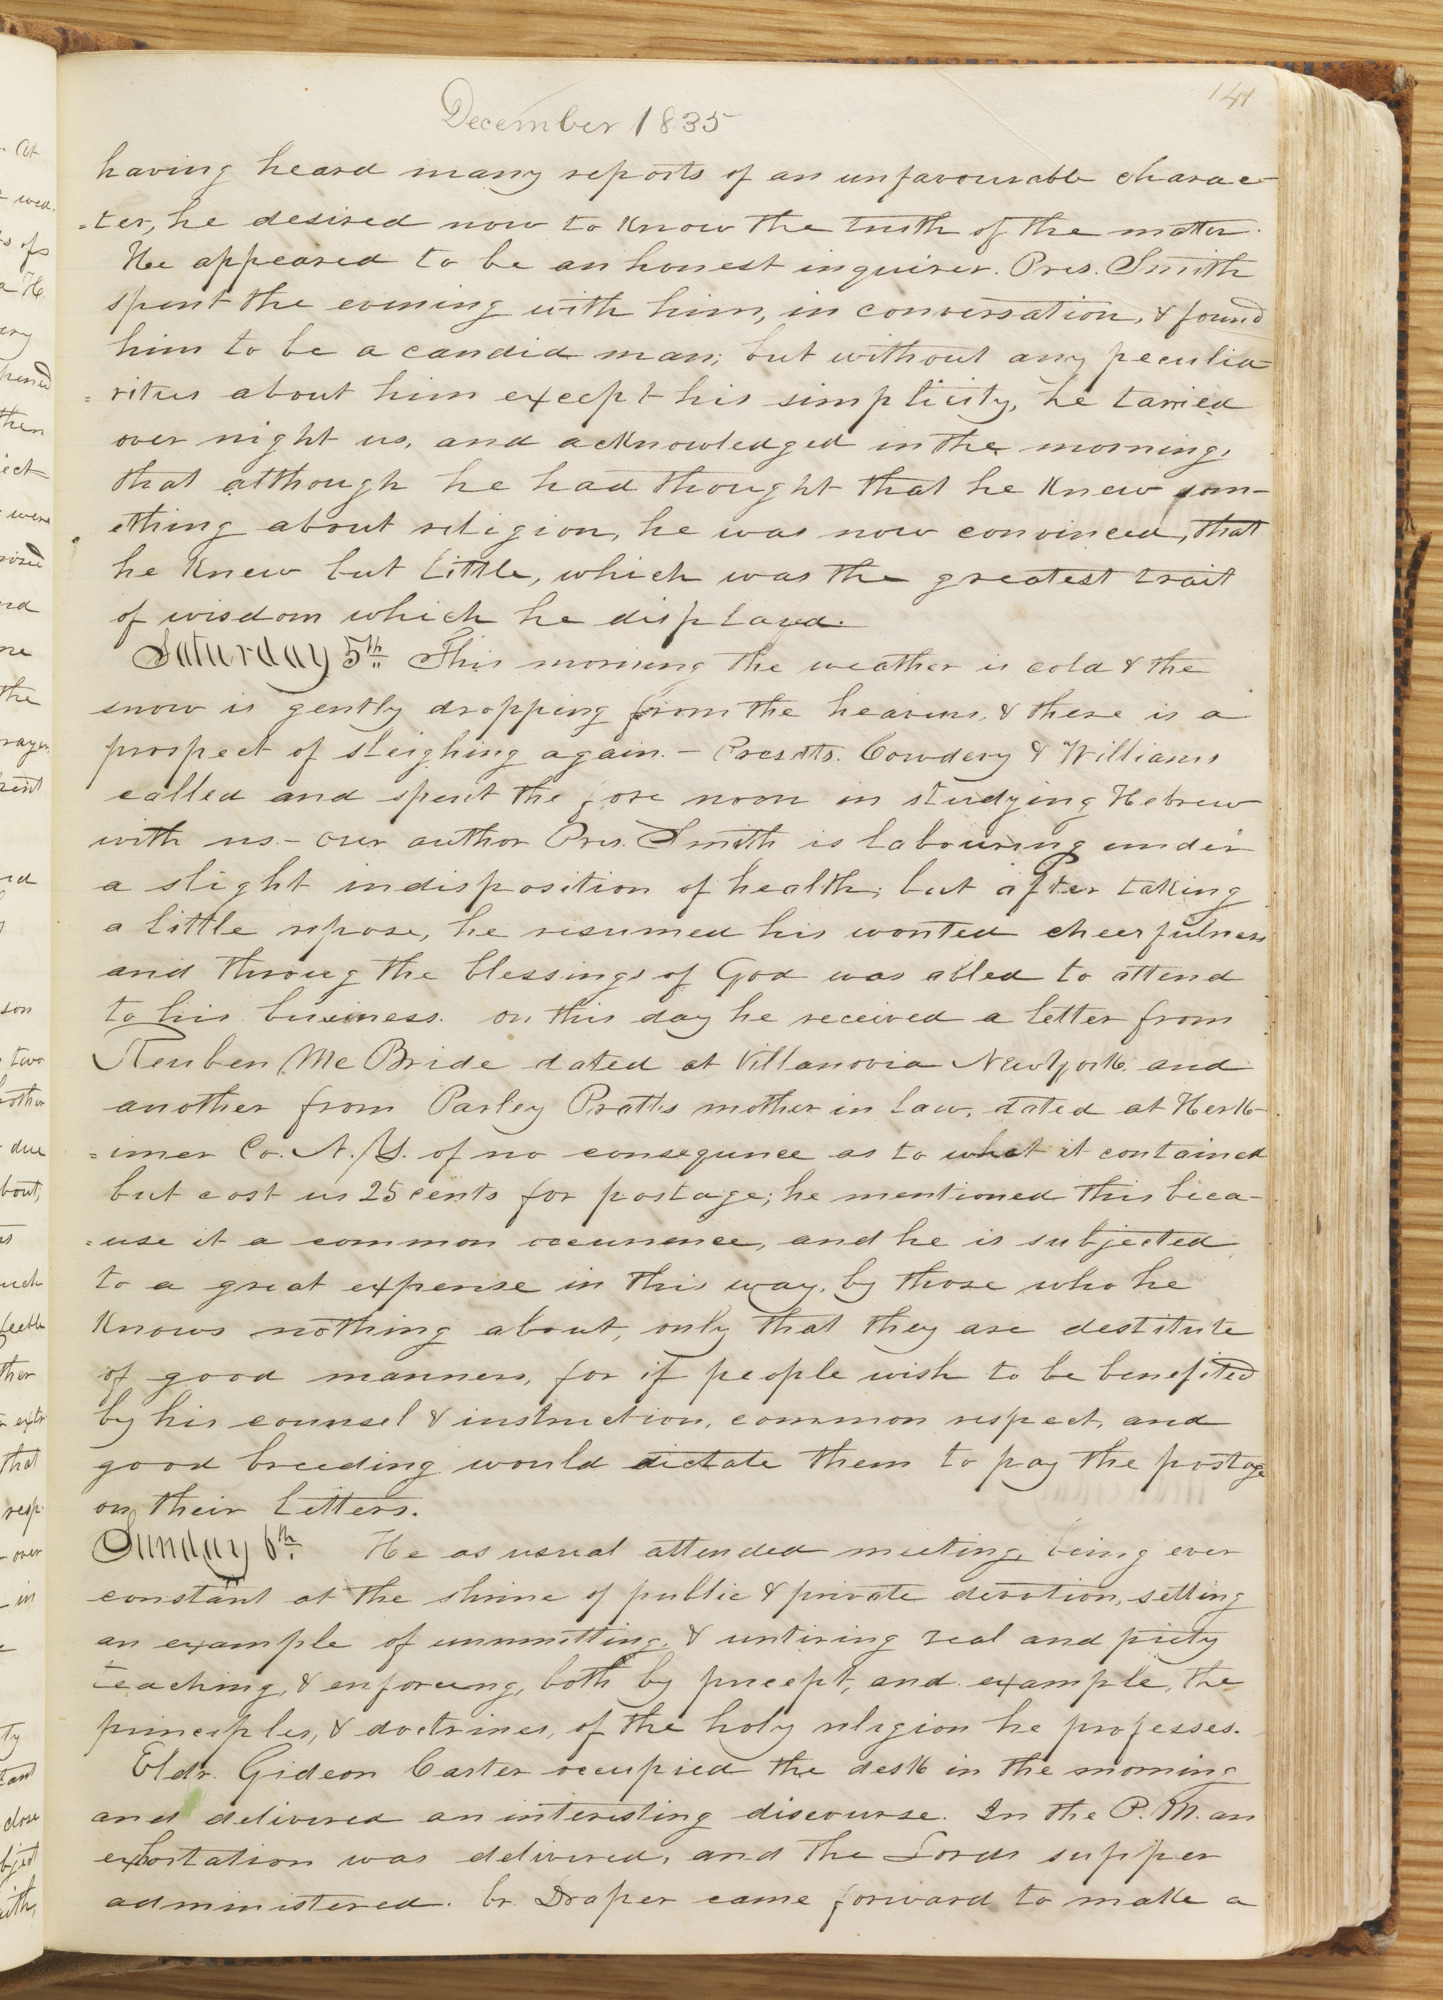 December 1835
141
having heard many reports of an unfavourable charac-
=ter, he desired now to know the truth of the matter.
He appeared to be an honest inquirer. Pres. Smith
spent the evening with him, in conversation, & found
him to be a candid man; but without any peculia-
=rities about him except his simplicity, he tarried
over night us, and acknowledged in the morning,
that although he had thought that he knew som-
ething about religion, he was now convinced, that
he knew but little, which was the greatest trait
of wisdom which he displayed.
Saturday 5th This morning the weather is cold & the
snow is gently dropping from the heavens, & there is a
prospect of sleighing again. – Presdts. Cowdery & Williams
called and spent the fore noon in studying Hebrew
with us – our author Pres. Smith is labouring under
a slight indisposition of health; but after taking
a little repose, he resumed his wonted cheerfulness
and throug the blessings of God was abled to attend
to his business. on this day he received a letter from
Reuben McBride dated at Villanovia NewYork. and
another from Parley Pratts mother in law, dated at Herk-
=imer Co. N. Y. of no consequnce as to what it contained
but cost us 25 cents for postage; he mentioned this beca-
=use it a common occurrence, and he is subjected
to a great expense in this way, by those who he
knows nothing about, only that they are destitute
of good manners, for if people wish to be benefited
by his counsel & instruction, common respect, and
good breeding would dictate them to pay the postage
on their letters.
Sunday 6th. He as usual attended meeting, being ever
constant at the shrine of public & private devotion, setting
an example of unremitting, & untiring zeal and piety
teaching, & enforceng, both by precept, and example, the
principles, & doctrines, of the holy religion he professes.
Eldr. Gideon Carter occupied the desk in the morning
and delivered an interesting discourse. In the P. M. an
exhortation was delivered, and the Lords supper
administered. br. Draper came forward to make a